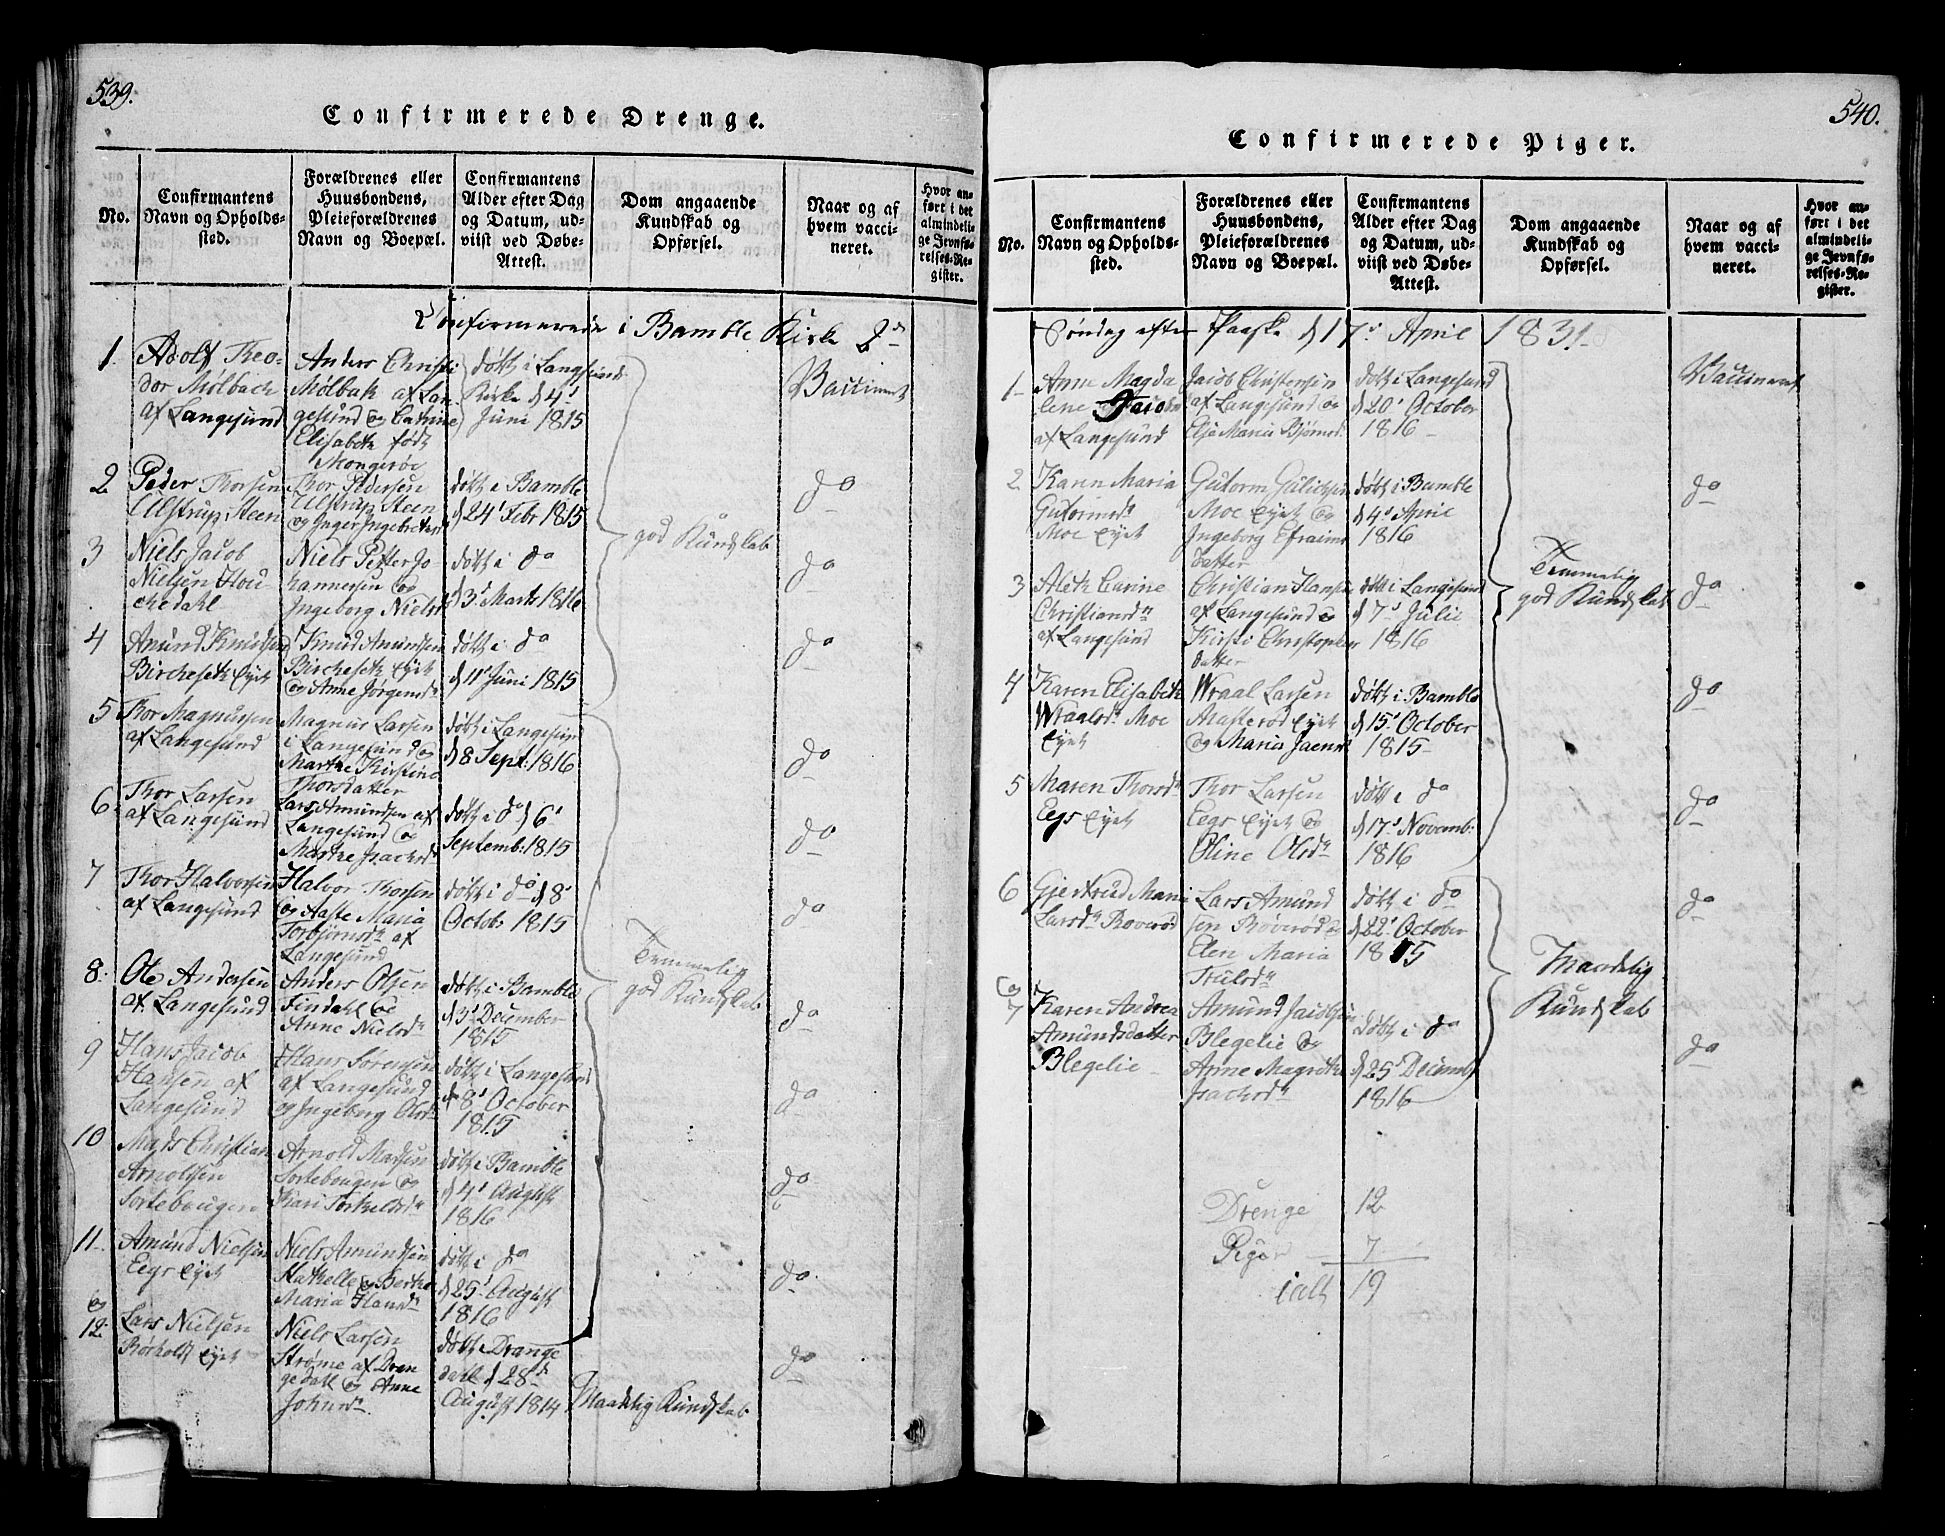 539.
Confirmerede Drenge.
No.
Confirmantens
Navn og Opholds-
sted.
Forældrenes eller
Huusbondens,
Pleieforældrenes
Navn og Boepæl.
Confirmantens
Alder efter Dag
og Datum, ud-
viist ved Døbe-
Attest.
Dom angaaende
Kundskab og
Opførsel.
Naar og af
hvem vacci-
neret.
Hvor an-
ført i det
almindeli-
ge Jevnfø-
relses-Re-
gister.
Confirmerede i Bamble Kirke 2den
1.
Adolf Theo-
dor Mølbach
af Langesund
Anders Christi
Mølbak af Lan-
gesund og Catrine
Elisabeth født
Mongerøe
døbt i Langesund
Kirke d 4'
Juni 1815
Vaccineret
2
Peder Thorsen
Ulstrup Steen
Thor Pedersen
Ulstrup Steen
og Inger Ingebrets
døbt i Bamble
d 24' Febr 1815
do
god Kundskab
3
Niels Jacob
Nielsen Hou-
chedahl
Niels Petter Jo-
hannesen og
Ingeborg Nielsd
døbt i do
d 3' Marts 1816
do
4
Amund Knudsen
Bircheseth Eyet
Knud Amundsen
Bircheseth Eyet
og Anne Jørgensd
døbt i do
d 11' Juni 1815
do
5
Thor Magnussen
af Langesund
Magnus Larsen
i Langesund og
Marthe Kirstine
Thorsdatter
døbt i Langesun
d 8 Sept: 1816
do
6
Thor Larsen
af Langesund
Lars Amundsen af
Langesund og
Marthe Isachsd
døbt i do d 6'
Septemb: 1815
do
7
Thor Halvorsen
af Langesund
Halvor Thorsen
og Aaste Maria
Torbjørnsd af
Langesund
døbt i do d 8'
Octobr 1815
do
Temmelig
god Kundskab
8.
Ole Andersen
af Langesund
Anders Olsen
Findahl og
Anne Nielsd
døbt i Bamble
d 3' December
1815
do
9
Hans Jacob
Hansen af
Langesund
Hans Sørensen
af Langesund
og Ingeborg Olsd
døbt i Langesund
d 8' October
1815
do
10
Mads Christian
Arnoldsen
Sortebougen
Arnold Madsen
Sortebougen og
Kari Torkeldsd
døbt i Bamble
d 4' August
1816
do
11
Amund Nielsen
Eegs Eyet
Niels Amundsen
og Berthe
Maria Hansd
døbt i do
d 25' August
1816
do
og
12
Lars Nielsen
Rørholt Eyet
Niels Larsen
Strøme af Dran
gedahl og Anne
Johnsd
døbt i Drange
dahl d 28de
August 1814
Maadelig Kundskab
do
540.
Confirmerede Piger.
No.
Confirmantens
Navn og Opholds-
sted.
Forældrenes eller
Huusbondens,
Pleieforældrenes
Navn og Boepæl.
Confirmantens
Alder efter Dag
og Datum, ud-
viist ved Døbe-
Attest.
Dom angaaende
Kundskab og
Opførsel.
Naar og af
hvem vacci-
neret.
Hvor an-
ført i det
almindeli-
ge Jevnfø-
relses-Re-
gister.
Søndag efter Paaske d 17' April 1831
1
Anne Magda
lene
af Langesund
Jacob Christensen
af Langesund og
Else Maria Bjørnsd
døbt i Langesund
d 20' October
1816
Vaccineret
2
Karen Maria
Gutormsd
Moe Eyet
Gutorm Gulichsen
Moe Eyet og
Ingeborg Efraims
datter
døbt i Bamble
d 4' April
1816
do
Temmelig
god Kundskab
3
Aleth Carine
Christiansd
af Langesund
Christian Hansen
af Langesund og
Kirsti Christopher
datter
døbt i Langesund
d 7' Julii
1816
do
4
Karen Elisabeth
Wraalsd Moe
Eyet
Wraal Larsen
Aasterød Eyet
og Maria Jaensd
døbt i Bamble
d 15' October
1815
do
5
Maren Thorsd
Eegs Eyet
Thor Larsen
Eegs Eyet og
Oline Olsd
døbt i do
d 17' Novemb:
1816
do
6
Gjertrud Mari
Larsd Roverød
Lars Amund
sen Røverød og
Elen Maria
Trulsd
døbt i do
d 22' October
1815
do
Maadelig
Kundskab
og
7
Karen Andrea
Amundsdatter
Blegelie
Amund Jacobsen
Blegelie og
Anne Magrethe
Isachsd
døbt i do
d 25' Decemb
1816
do
Drenge 12
Piger 7
ialt 19